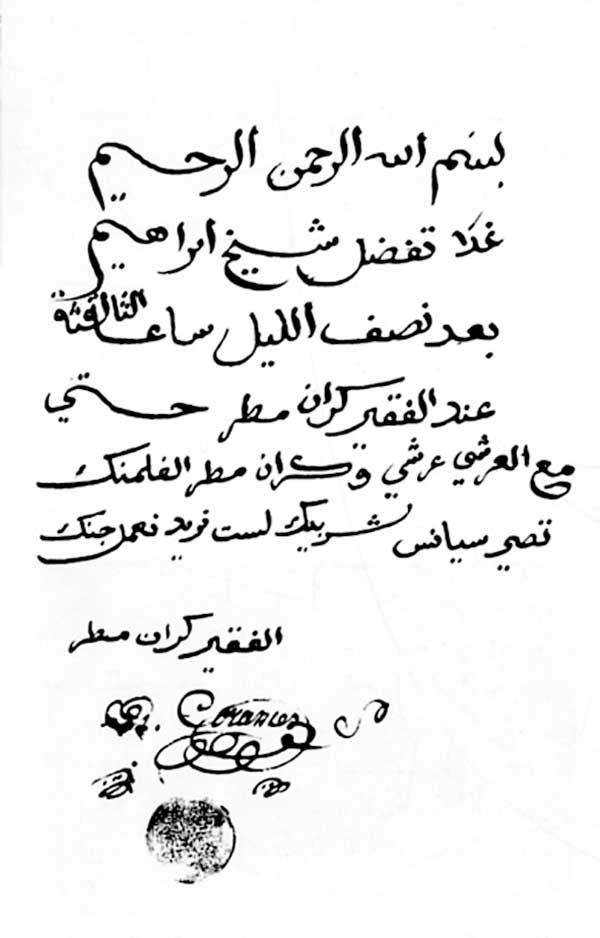 بسم الله الرحمن الرحيم
غدا تفضل شيخ ابراهيم
بعد نصف الليل ساعا الثالثة
عند الفقير كران مطر حتي
مع العرشي عرشي وكران مطر الفلمنك
تصير سيانس شريك لست نريد نعمل جنك
الفقير كران مطر